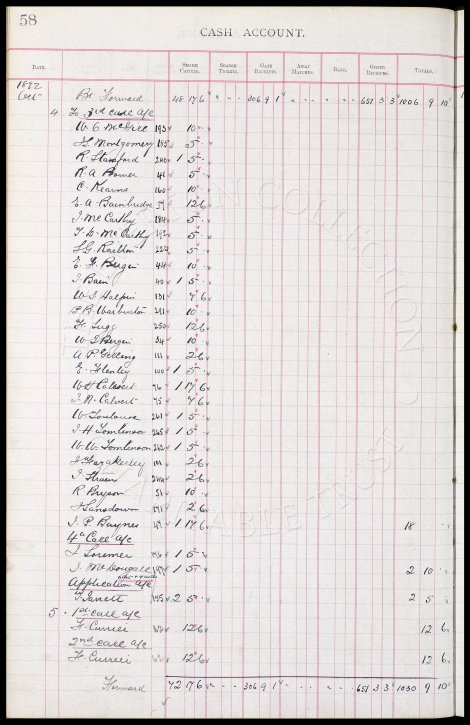 58
CASH ACCOUNT.
DATE. SHARE CAPITAL. SEASON TICKETS. GATE RECEIPTS. AWAY MATCHES. BANK. OTHER RECEIPTS. TOTALS.
1892
Oct Bt Forward 48 17 6 306 9 1 651 3 3 1006 9 10
4 To 3rd call a/c
W. C. McGill 193 10
H. Montgomery 5
R Stamford 1 5
R. A. Bower 41 5
C. Kearns 160 10
E. A. Bainbridge 12 6
J. McCarthy 5
T. D. McCarthy 5
S. G. Railton 5
E. G. Bergin 44 10
J. Bain 40 1 5
W. J. Halpin 131 7 6
P. R. Warburton 241 10
H. Sugg 250 12 6
W. J. Bergin 34 10
A. P. Gelling 111 2 6
E. Henley 100 1 5
W. H Calvert 76 1 17 6
J. N. Calvert 75 7 6
W. Toulouse 267 1 5
J. H Tomlinson 265 1 5
W. W. Tomlinson 262 1 5
J Fazakerley 2 6
J. Strain 2 6
R Bryson 51 10
J Lansdown 171 2 6
J. P. Baynes 47 1 17 6 18
4th Call a/c
J Lorimer 1 5
J. McDougall 1 5 2 10
Application a/c
T. Jarrett 2 5 2 5
5 1st call a/c
H. Currier 12 6 12 6
2nd call a/c
H. Currier 12 6 12 6
Forward 72 17 6 306 9 1 651 3 3 1030 9 10